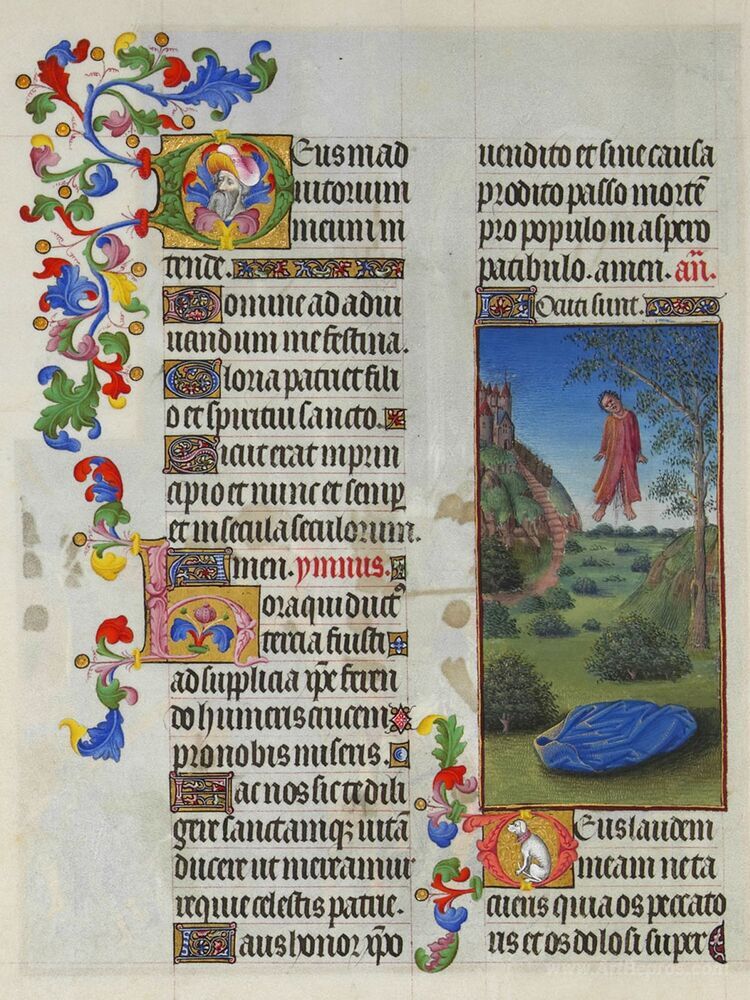 Deus in ad
iutorium
meum in
tende.
Domine ad adiu
uandum me festina.
Gloria patri et fili
o et spiritui sancto.
Sicut erat in prin
cipio et nunc et semp
et in secula seculorum.
Amen. ymnus.
Hora qui duct'
tercia fuisti
ad supplicia xpe feren
do humeris crucem
pro nobis miseris.
Fac nos sic te dili
gere sanctamq; uitā
ducere ut mereamur
requie celestis patrie.
Laus honor xpo
uendito et sine causa
prodito passo mortē
pro populo in aspero
patibulo. amen. añ.
Locuti sunt.
Deus laudem
meam ne ta
cueris quia os peccato
ris et os dolosi super